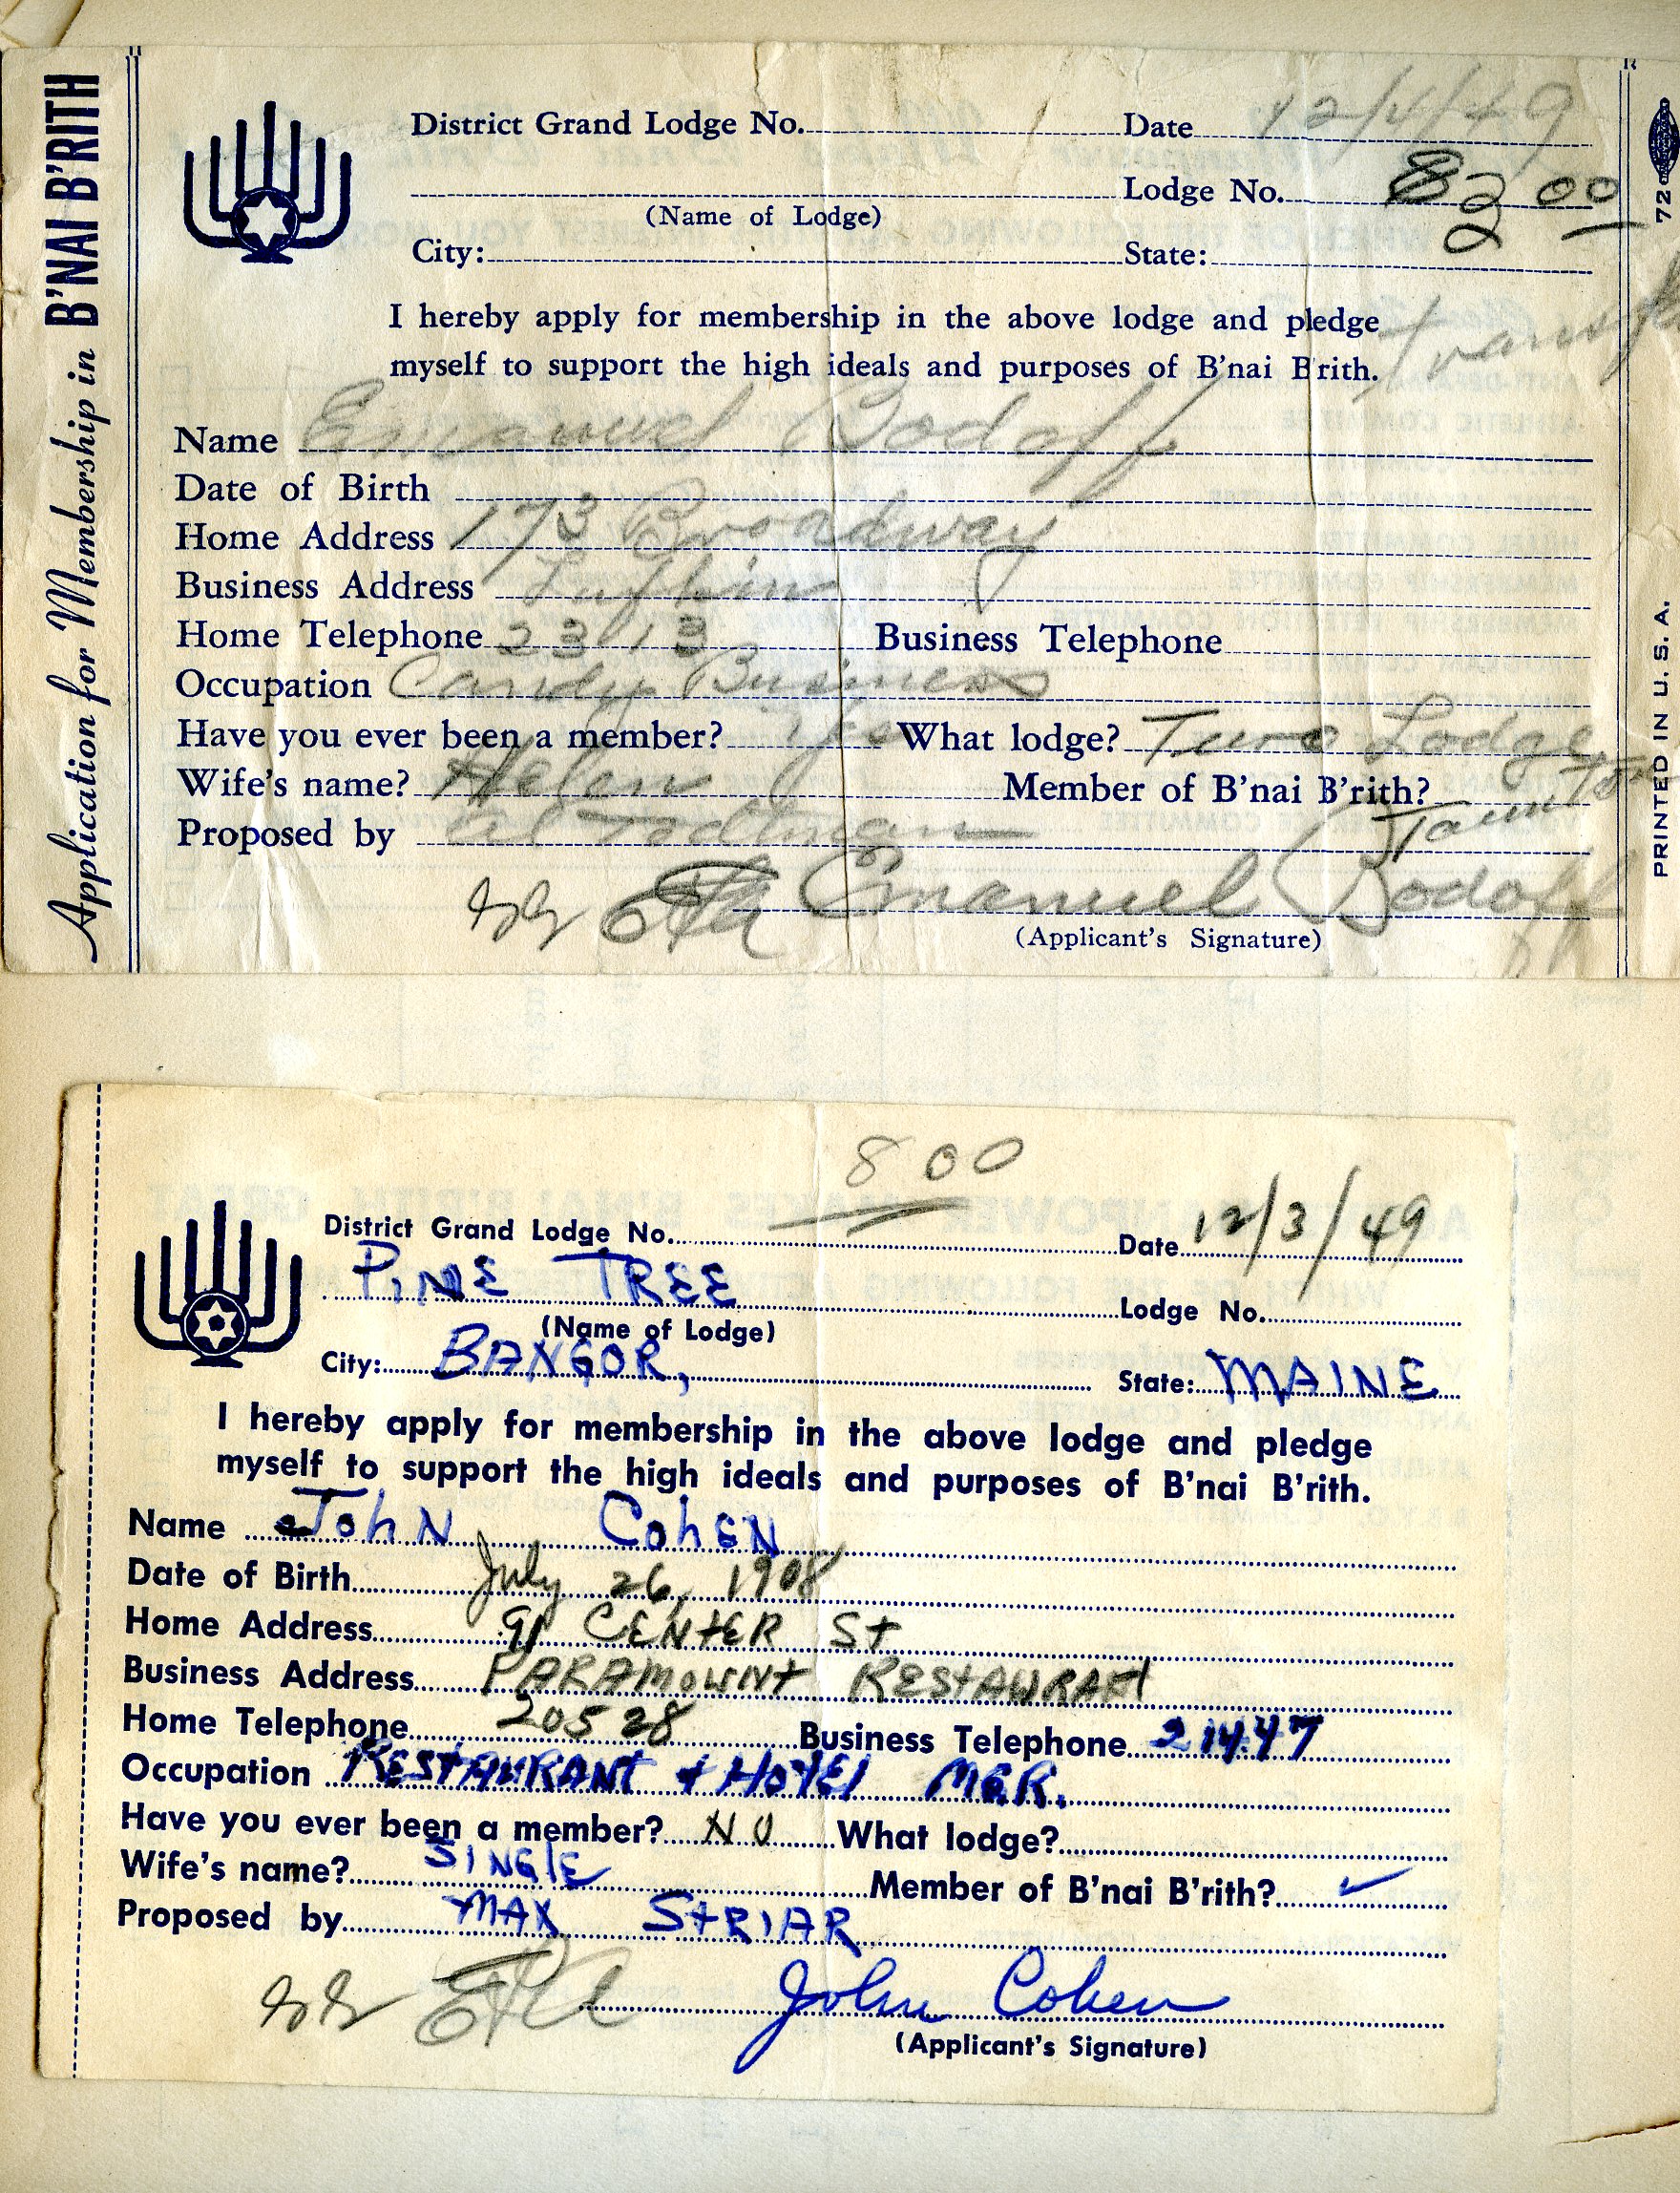 Application for Membership in B'NAI B'RITH
District Grand Lodge No. Date 12/4/49
Lodge No. 2 00
(Name of Lodge)
City: State:
I hereby apply for membership in the above lodge and pledge
myself to support the high ideals and purposes of B'nai B'rith.
Name Emanuel Bodoff
Date of Birth
Home Address 173 Broadway
Business Address
Home Telephone 2313 Business Telephone
Occupation Candy Business
Have you ever been a member? Yes What lodge? Turo Lodge
Wife's name? Helen Member of B'nai B'rith?
Proposed by
Emanuel Bodoff
(Applicant's Signature)
72
PRINTED IN U. S. A.
8 00
District Grand Lodge No. Date 12/3/49
PINE TREE Lodge No.
(Name of Lodge)
City: BANGOR, State: MAINE
I hereby apply for membership in the above lodge and pledge
myself to support the high ideals and purposes of B'nai B'rith.
Name John CohEN
Date of Birth July 26, 1908
Home Address 91 CENtER St
Business Address PARAMOUNt
Home Telephone 20528 Business Telephone 21447
Occupation REStAURANT + HOtEl MGR.
Have you ever been a member? NO What lodge?
Wife's name? SINGlE Member of B'nai B'rith? ✓
Proposed by MAX StRIAR
John Cohen
(Applicant's Signature)